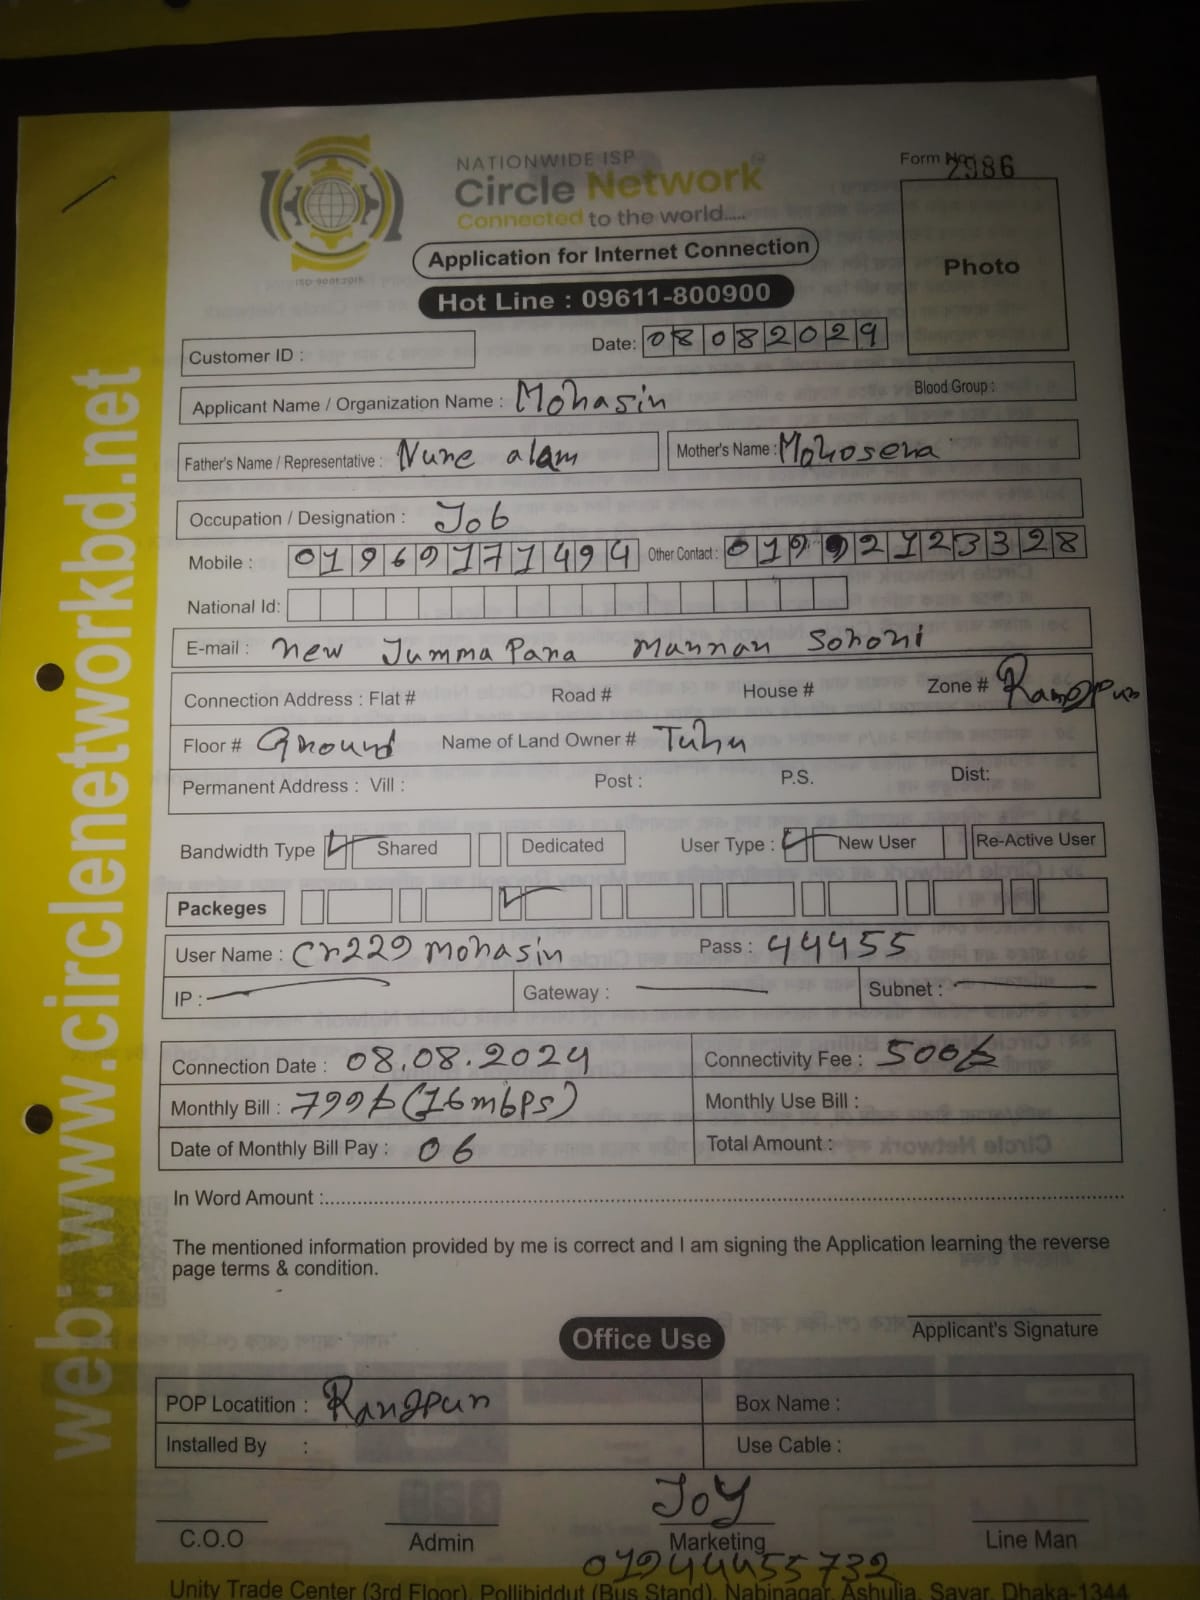 NATIONWIDE ISP
Circle Network
Connected to the world.....
ISO 9001:2015
Form No. 2986
Application for Internet Connection
Photo
Hot Line : 09611-800900
Customer ID :
Date: 08082024
Applicant Name / Organization Name : Mohasin Blood Group :
Father's Name / Representative : Nure alam Mother's Name : Mohosena
Occupation / Designation : Job
Mobile : 01969171494 Other Contact :
National Id:
E-mail : new Jumma Para mannan Sohoni
Connection Address : Flat # Road # House # Zone # Rangpur
Floor # Ground Name of Land Owner # Tuhu
Permanent Address : Vill : Post : P.S. Dist:
Bandwidth Type Shared Dedicated User Type : New User Re-Active User
Packeges
User Name : cr229 mohasin Pass : 44455
IP : Gateway : Subnet :
Connection Date : 08.08.2024 Connectivity Fee : 500/-
Monthly Bill : 799/- (16mbps) Monthly Use Bill :
Date of Monthly Bill Pay : 06 Total Amount :
In Word Amount :
The mentioned information provided by me is correct and I am signing the Application learning the reverse
page terms & condition.
Applicant's Signature
Office Use
POP Locatition : Rangpur Box Name :
Installed By : Use Cable :
JOY
C.O.O Admin Marketing Line Man
01944455732
Unity Trade Center (3rd Floor), Pollibiddut (Bus Stand), Nabinagar, Ashulia, Savar, Dhaka-1344
web: www.circlenetworkbd.net